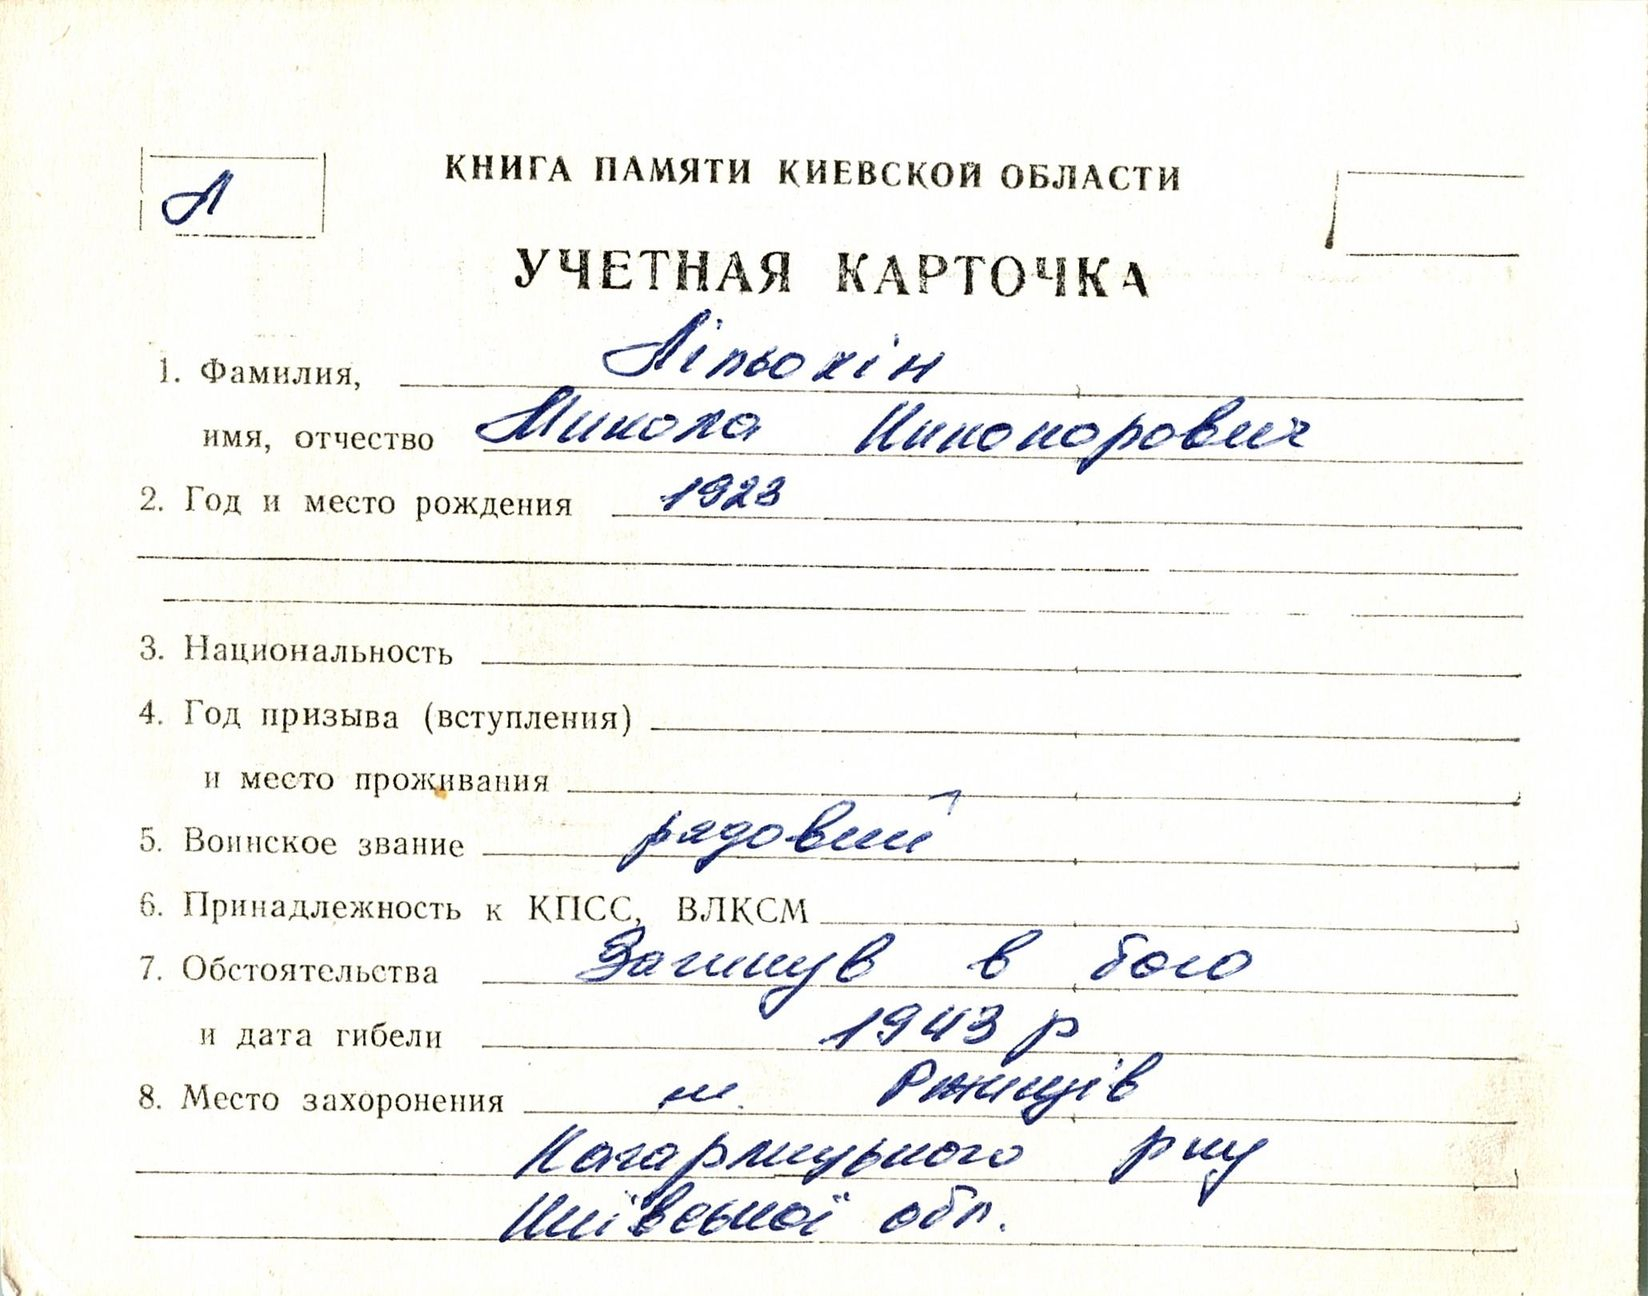 Л
КНИГА ПАМЯТИ КИЕВСКОЙ ОБЛАСТИ
УЧЕТНАЯ КАРТОЧКА
1. Фамилия, Ліпьохін
имя, отчество Микола Никонорович
2. Год и место рождения 1923
3. Национальность
4. Год призыва (вступления)
и место проживания
5. Воинское звание рядовий
6. Принадлежность к КПСС, ВЛКСМ
7. Обстоятельства Загинув в бою
и дата гибели 1943 р
8. Место захоронения м. Ржищів
Кагарлицького р ну
Київської обл.